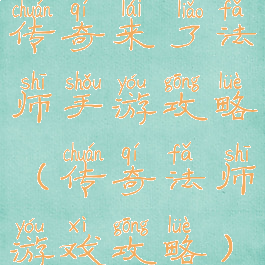 chuán qí lái liǎo fǎ
传奇来了法
shī shǒu yóu gōng lüè
师手游攻略
chuán qí fǎ shī
（传奇法师
yóu xì gōng lüè
游戏攻略）